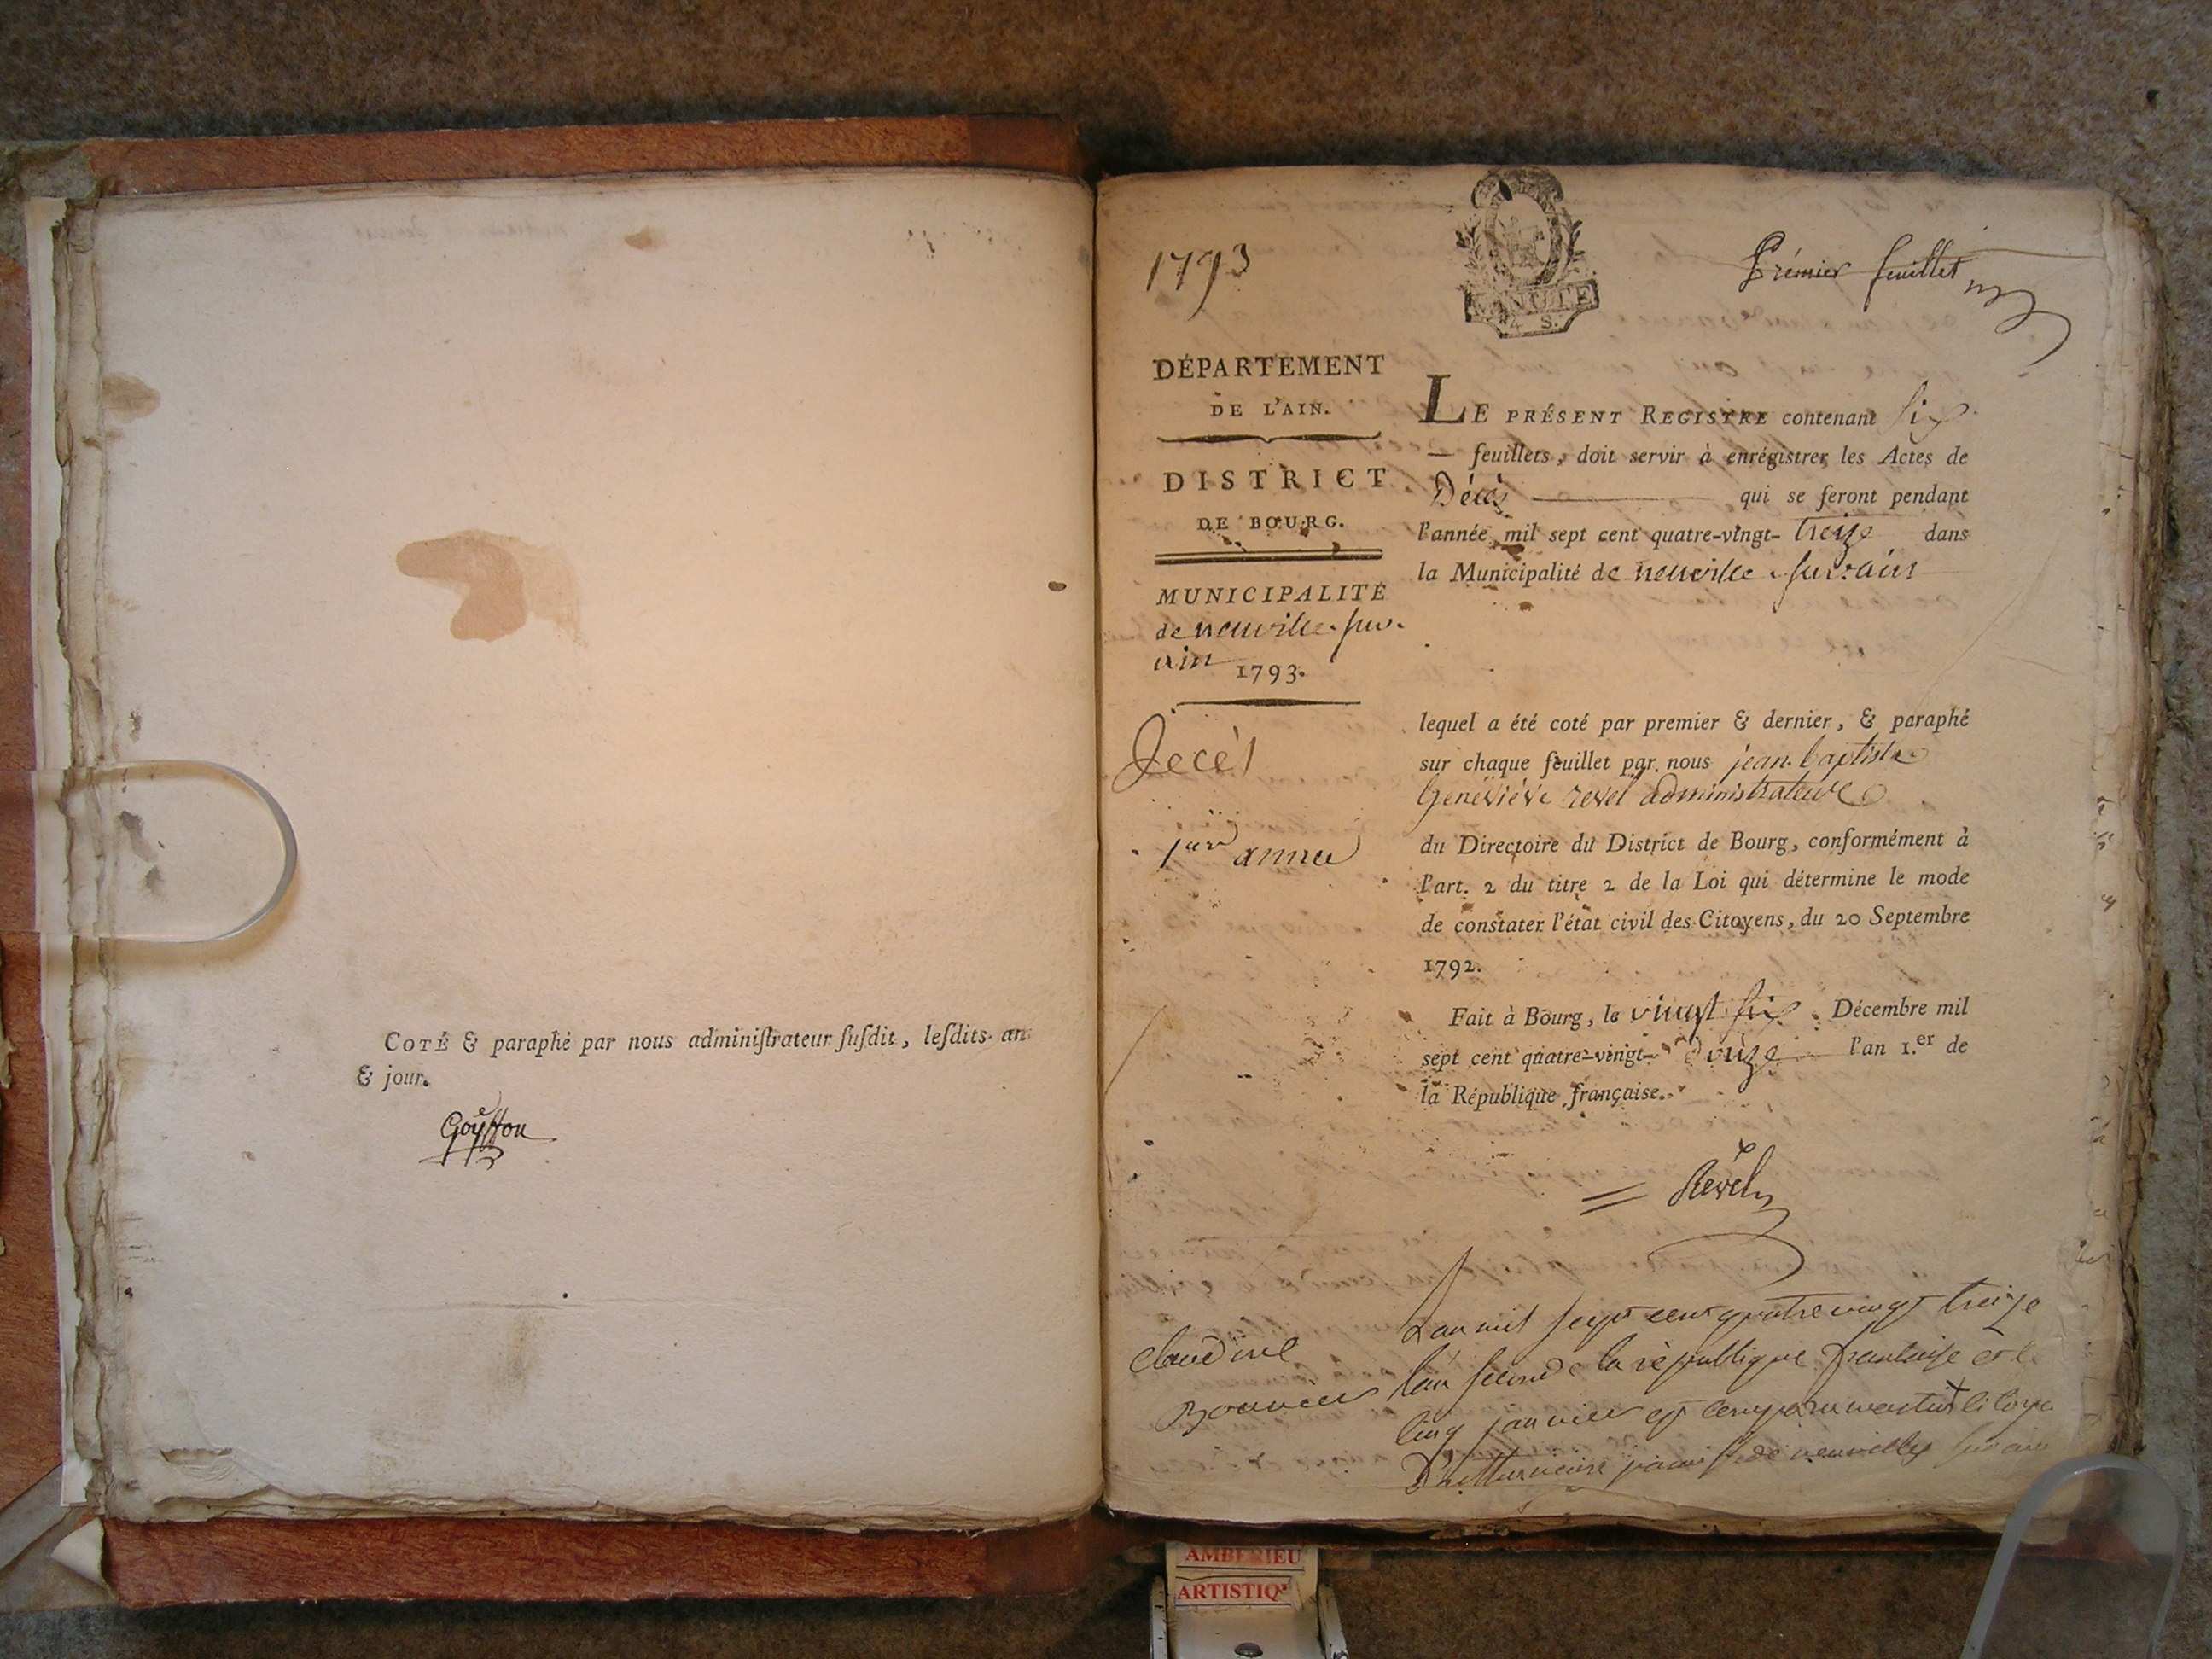 COTÉ & paraphé par nous adminiſtrateur ſuſdit, leſdits an
& jour.
Goyffon
1793
MINUTE
4 S.
Prémier feuillet
DÉPARTEMENT
DE L'AIN.
DISTRICT
DE BOURG.
MUNICIPALITÉ
de neuville-sur-
ain
1793.
Decès
1ere année
LE PRÉSENT REGISTRE contenant six
— feuillets, doit servir à enrégistrer les Actes de
Décès qui se feront pendant
l'année mil sept cent quatre-vingt-treize dans
la Municipalité de neuville-sur-ain
lequel a été coté par premier & dernier, & paraphé
sur chaque feuillet par nous jean-baptiste
Géneviéve revel administrateur
du Directoire du District de Bourg, conformément à
l'art. 2 du titre 2 de la Loi qui détermine le mode
de constater l'état civil des Citoyens, du 20 Septembre
1792.
Fait à Bourg, le vingt six Décembre mil
sept cent quatre-vingt-douze l'an 1.er de
la République française.
Révél
Claudine
Bouvier
Lan mil sept cent quatre vingt treize
lan second de la république francaise et le
cinq janvier est comparu
de neuville sur ain
AMBERIEU
ARTISTIQ